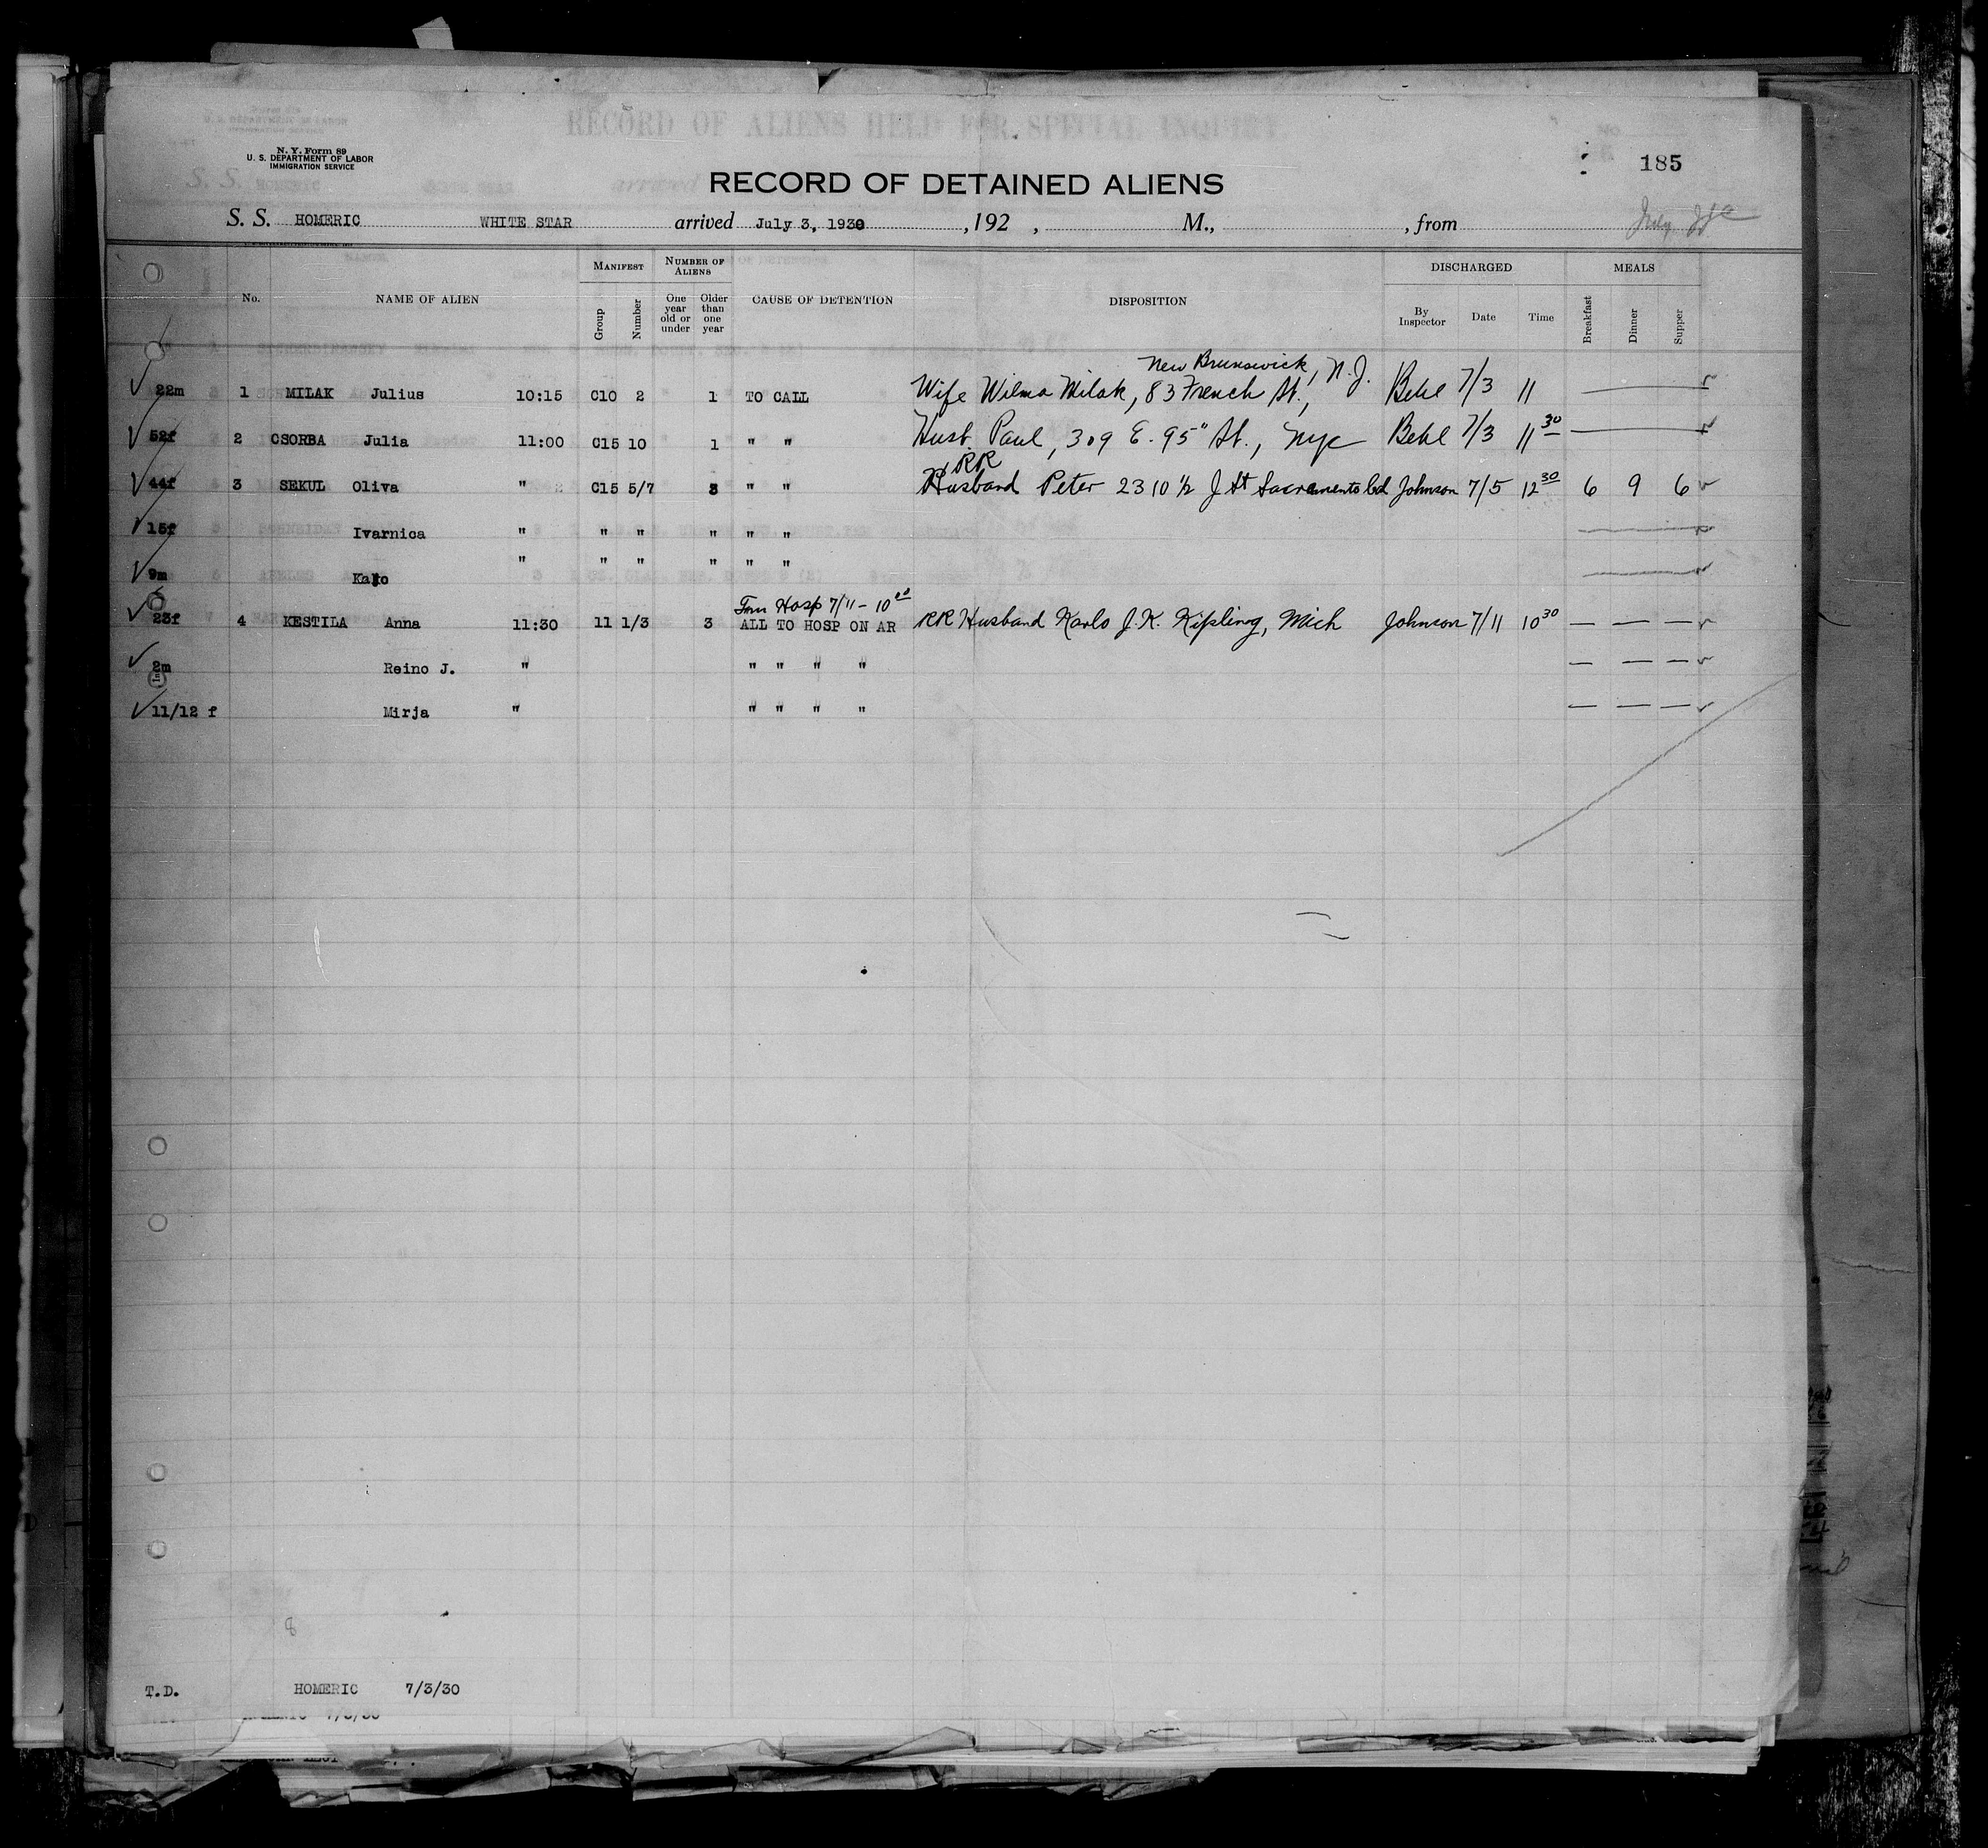 RECORD OF ALIENS HELD FOR SPECIAL INQUIRY
N. Y. Form 89
U. S. DEPARTMENT OF LABOR
IMMIGRATION SERVICE
185
RECORD OF DETAINED ALIENS
S. S. HOMERIC WHITE STAR arrived July 3, 1930 , 192 , M., , from
No. NAME OF ALIEN MANIFEST Group Number NUMBER OF ALIENS One year old or under Older than one year CAUSE OF DETENTION DISPOSITION DISCHARGED By Inspector Date Time MEALS Breakfast Dinner Supper
New Brunswick, N.J.
22m 1 MILAK Julius 10:15 C10 2 1 TO CALL Wife Wilma Milak, 83 French St., Behl 7/3 11
52f 2 CSORBA Julia 11:00 C15 10 1 " " Husb. Paul, 309 E. 95" St., NYC Behl 7/3 11 30
RR
44f 3 SEKUL Oliva " C15 5/7 3 " " Husband Peter 2310 1/2 J St Sacramento Cal Johnson 7/5 12 30 6 9 6
15f Ivarnica " " " " " "
9m Kato " " " " " "
Frm Hosp 7/11 - 10 00
23f 4 KESTILA Anna 11:30 11 1/3 3 ALL TO HOSP ON AR RR Husband Karlo J.K. Kipling, Mich Johnson 7/11 10 30 — — —
2m Reino J. " " " " " — — —
11/12 f Mirja " " " " " — — —
8
T.D. HOMERIC 7/3/30